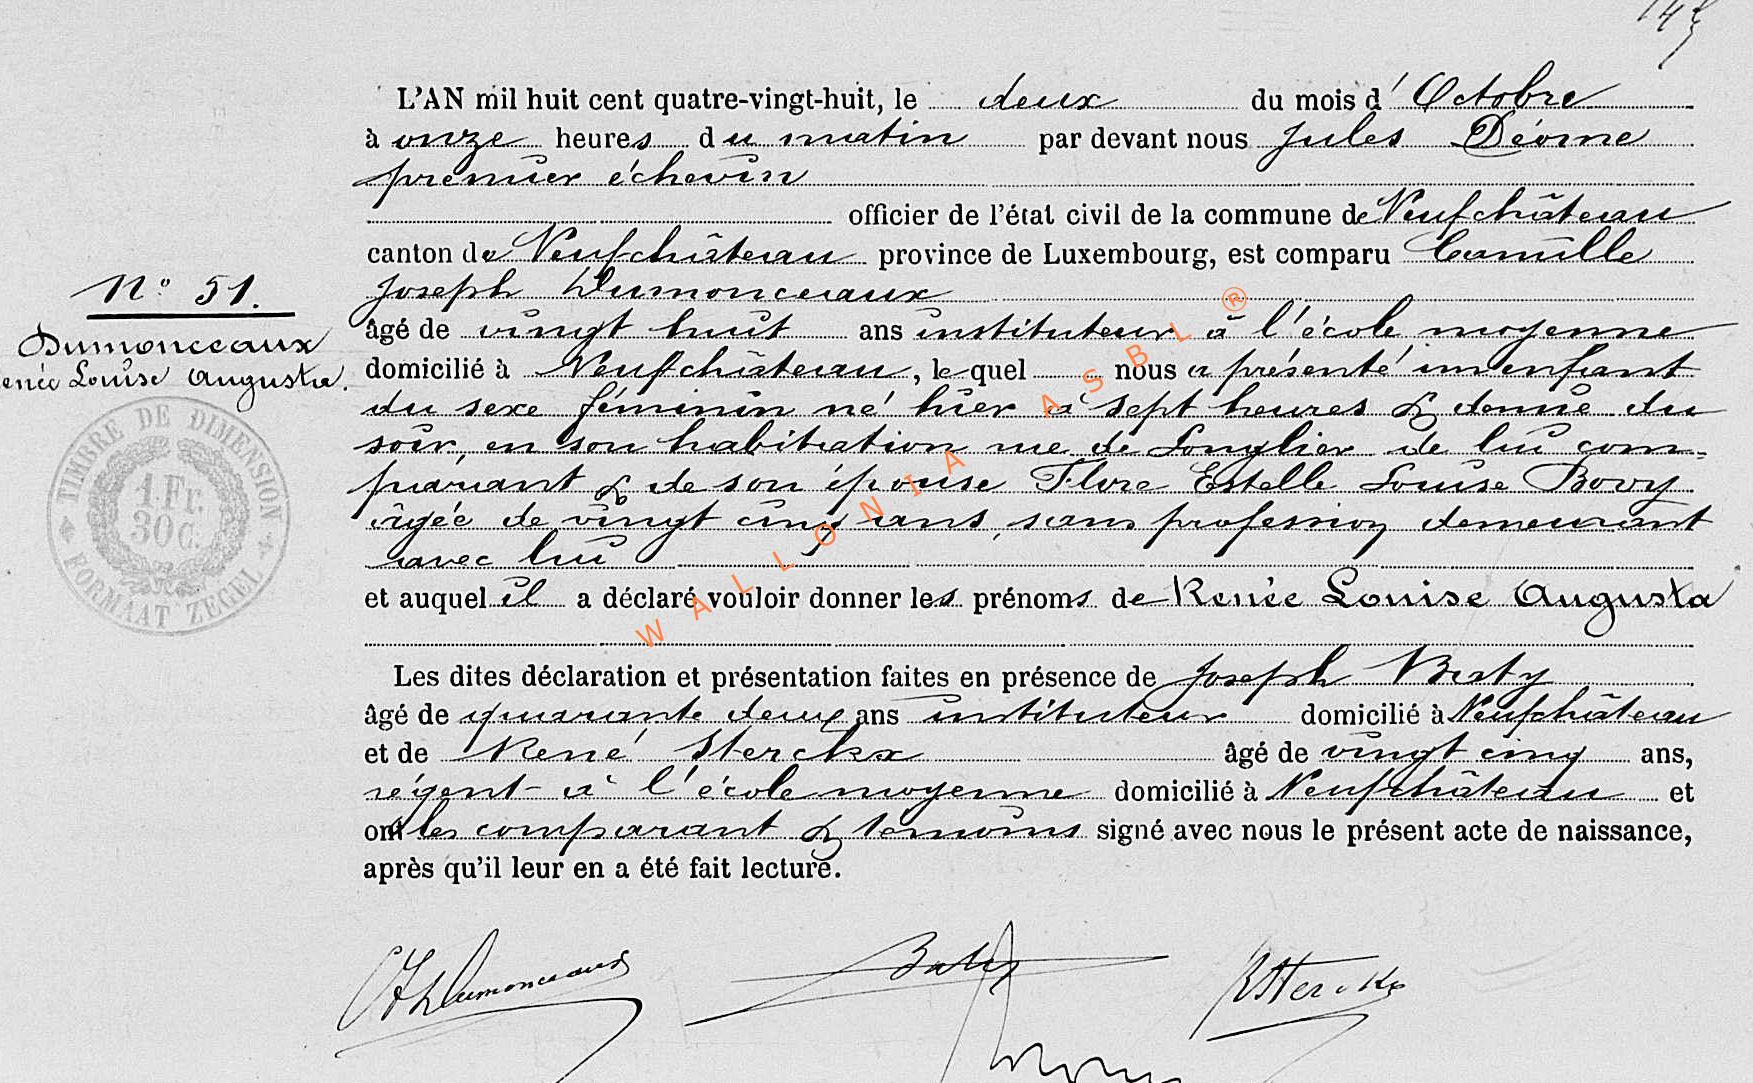 145
L'AN mil huit cent quatre-vingt-huit, le deux du mois d'Octobre
à onze heures du matin par devant nous Jules Déome
premier échevin
officier de l'état civil de la commune de Neufchâteau
canton de Neufchâteau province de Luxembourg, est comparu Camille
N° 51.
Joseph Dumonceaux
âgé de vingt huit ans instituteur à l'école moyenne
Dumonceaux
domicilié à Neufchâteau, lequel nous a présenté un enfant
Renée Louise Augusta.
du sexe féminin né hier à sept heures & demie du
soir, en son habitation rue de Longlier de lui com-
parant & de son épouse Flore Estelle Louise Bovy
âgée de vingt cinq ans, sans profession demeurant
avec lui
et auquel il a déclaré vouloir donner les prénoms de Renée Louise Augusta
TIMBRE DE DIMENSION
1 Fr.
30 C.
FORMAAT ZEGEL
WALLONIA ASBL ®
Les dites déclaration et présentation faites en présence de Joseph Baty
âgé de quarante deux ans instituteur domicilié à Neufchâteau
et de René Sterckx âgé de vingt cinq ans,
régent à l'école moyenne domicilié à Neufchâteau et
ont les comparant & témoins signé avec nous le présent acte de naissance,
après qu'il leur en a été fait lecture.
CJDumonceaux Baty RSterckx